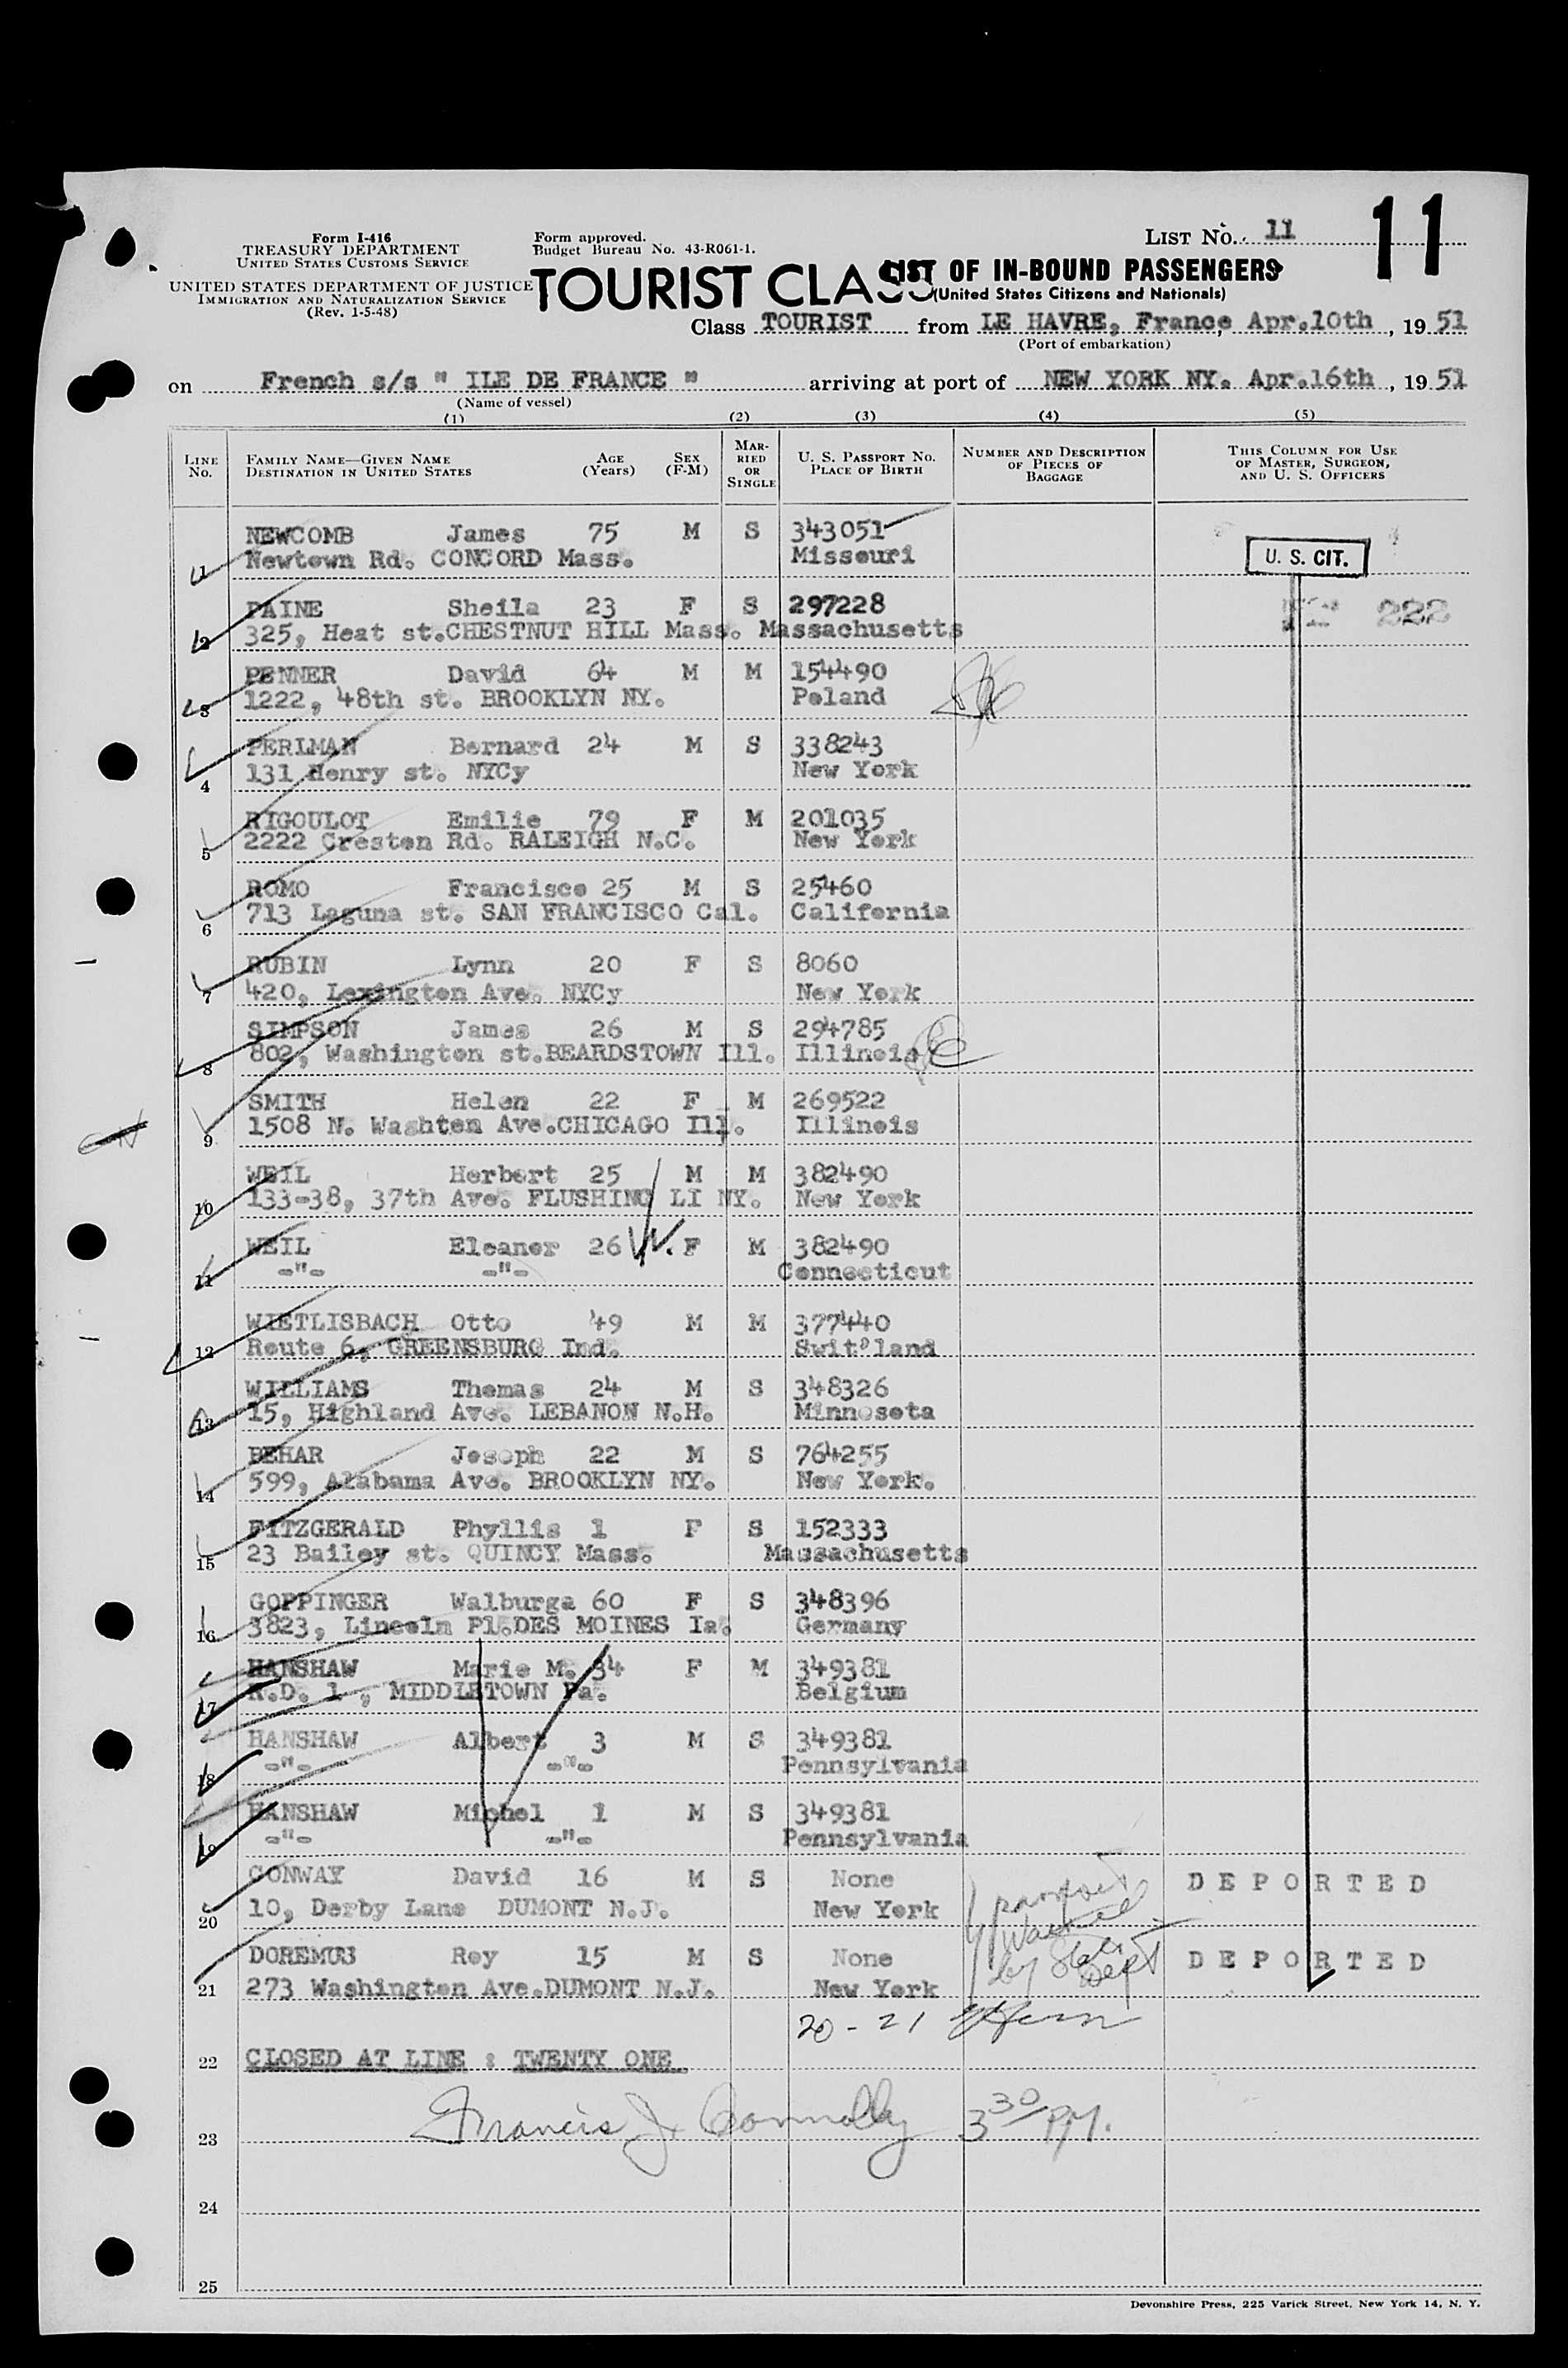 11
Form I-416
TREASURY DEPARTMENT
UNITED STATES CUSTOMS SERVICE
UNITED STATES DEPARTMENT OF JUSTICE
IMMIGRATION AND NATURALIZATION SERVICE
(Rev. 1-5-48)
Form approved.
Budget Bureau No. 43-R061-1.
LIST No. 11
TOURIST CLASS
LIST OF IN-BOUND PASSENGERS
(United States Citizens and Nationals)
Class TOURIST from LE HAVRE, France, Apr.10th, 19 51
(Port of embarkation)
on French s/s " ILE DE FRANCE " arriving at port of NEW YORK NY. Apr.16th, 19 51
(Name of vessel)
(1) (2) (3) (4) (5)
LINE No. FAMILY NAME—GIVEN NAME DESTINATION IN UNITED STATES AGE (Years) SEX (F-M) MARRIED OR SINGLE U. S. PASSPORT No. PLACE OF BIRTH NUMBER AND DESCRIPTION OF PIECES OF BAGGAGE THIS COLUMN FOR USE OF MASTER, SURGEON, AND U. S. OFFICERS
NEWCOMB James 75 M S 343051
1 Newtown Rd. CONCORD Mass. Missouri U. S. CIT.
PAINE Sheila 23 F S 297228 222
2 325, Heat st.CHESTNUT HILL Mass. Massachusetts
PENNER David 64 M M 154490
3 1222, 48th st. BROOKLYN NY. Poland
PERLMAN Bernard 24 M S 338243
131 Henry st. NYCy New York
4
RIGOULOT Emilie 79 F M 201035
5 2222 Creston Rd. RALEIGH N.C. New York
ROMO Francisco 25 M S 25460
713 Laguna st. SAN FRANCISCO Cal. California
6
RUBIN Lynn 20 F S 8060
7 420, Lexington Ave. NYCy New York
SIMPSON James 26 M S 294785
8 802, Washington st.BEARDSTOWN Ill. Illinois
SMITH Helen 22 F M 269522
9 1508 N. Washten Ave.CHICAGO Ill. Illinois
WEIL Herbert 25 M M 382490
10 133-38, 37th Ave. FLUSHING LI NY. New York
WEIL Eleanor 26 F M 382490
11 -"- -"- Connecticut
WIETLISBACH Otto 49 M M 377440
12 Route 6, GREENSBURG Ind. Swit'land
WILLIAMS Thomas 24 M S 348326
13 15, Highland Ave. LEBANON N.H. Minnesota
BEHAR Joseph 22 M S 764255
14 599, Alabama Ave. BROOKLYN NY. New York.
FITZGERALD Phyllis 1 F S 152333
15 23 Bailey st. QUINCY Mass. Massachusetts
GOPPINGER Walburga 60 F S 348396
16 3823, Lincoln Pl.DES MOINES Ia. Germany
HANSHAW Marie M. 34 F M 349381
17 R.D. 1 , MIDDLETOWN Pa. Belgium
HANSHAW Albert 3 M S 349381
18 -"- -"- Pennsylvania
HANSHAW Michel 1 M S 349381
19 -"- -"- Pennsylvania
CONWAY David 16 M S None DEPORTED
20 10, Derby Lane DUMONT N.J. New York
passport
waived
by State
Dept
DOREMUS Roy 15 M S None DEPORTED
21 273 Washington Ave.DUMONT N.J. New York
20 - 21
22 CLOSED AT LINE : TWENTY ONE
Francis J. Connolly 3 30/PM.
23
24
25
Devonshire Press, 225 Varick Street, New York 14, N. Y.